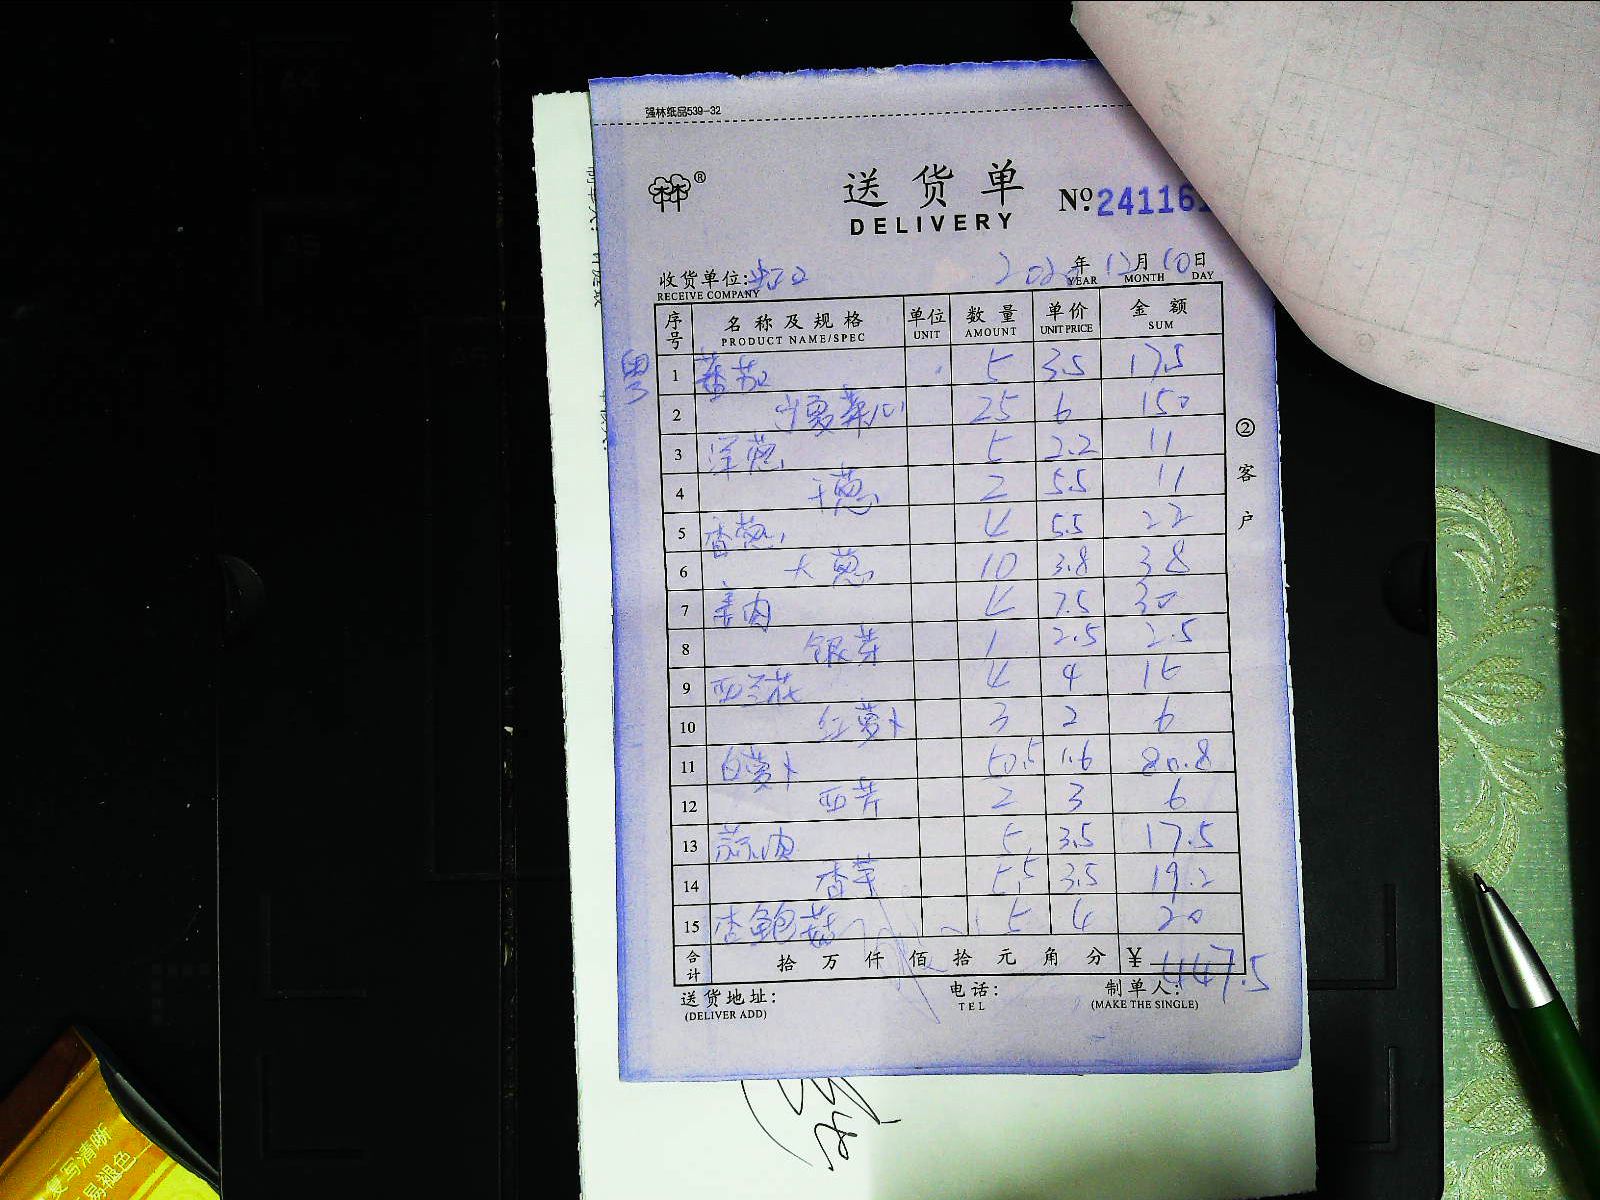 强林纸品539-32
®
送货单
DELIVERY
№ 24116
收货单位:虹口 2020年12月10日
RECEIVE COMPANY YEAR MONTH DAY
序号 名称及规格 单位 数量 单价 金额
PRODUCT NAME/SPEC UNIT AMOUNT UNIT PRICE SUM
1 蕃茄 5 3.5 17.5
2 宁夏菜心 25 6 150
3 洋葱 5 2.2 11
4 干葱 2 5.5 11
5 香葱 4 5.5 22
6 大葱 10 3.8 38
7 姜肉 4 7.5 30
8 银芽 1 2.5 2.5
9 西兰花 4 4 16
10 红萝卜 3 2 6
11 白萝卜 50.5 1.6 80.8
12 西芹 2 3 6
13 蒜肉 5 3.5 17.5
14 香芋 5.5 3.5 19.2
15 杏鲍菇 5 4 20
合计 拾 万 仟 佰 拾 元 角 分 ¥ 447.5
送货地址: 电话: 制单人:
(DELIVER ADD) TEL (MAKE THE SINGLE)
②客户
复写清晰
易褪色